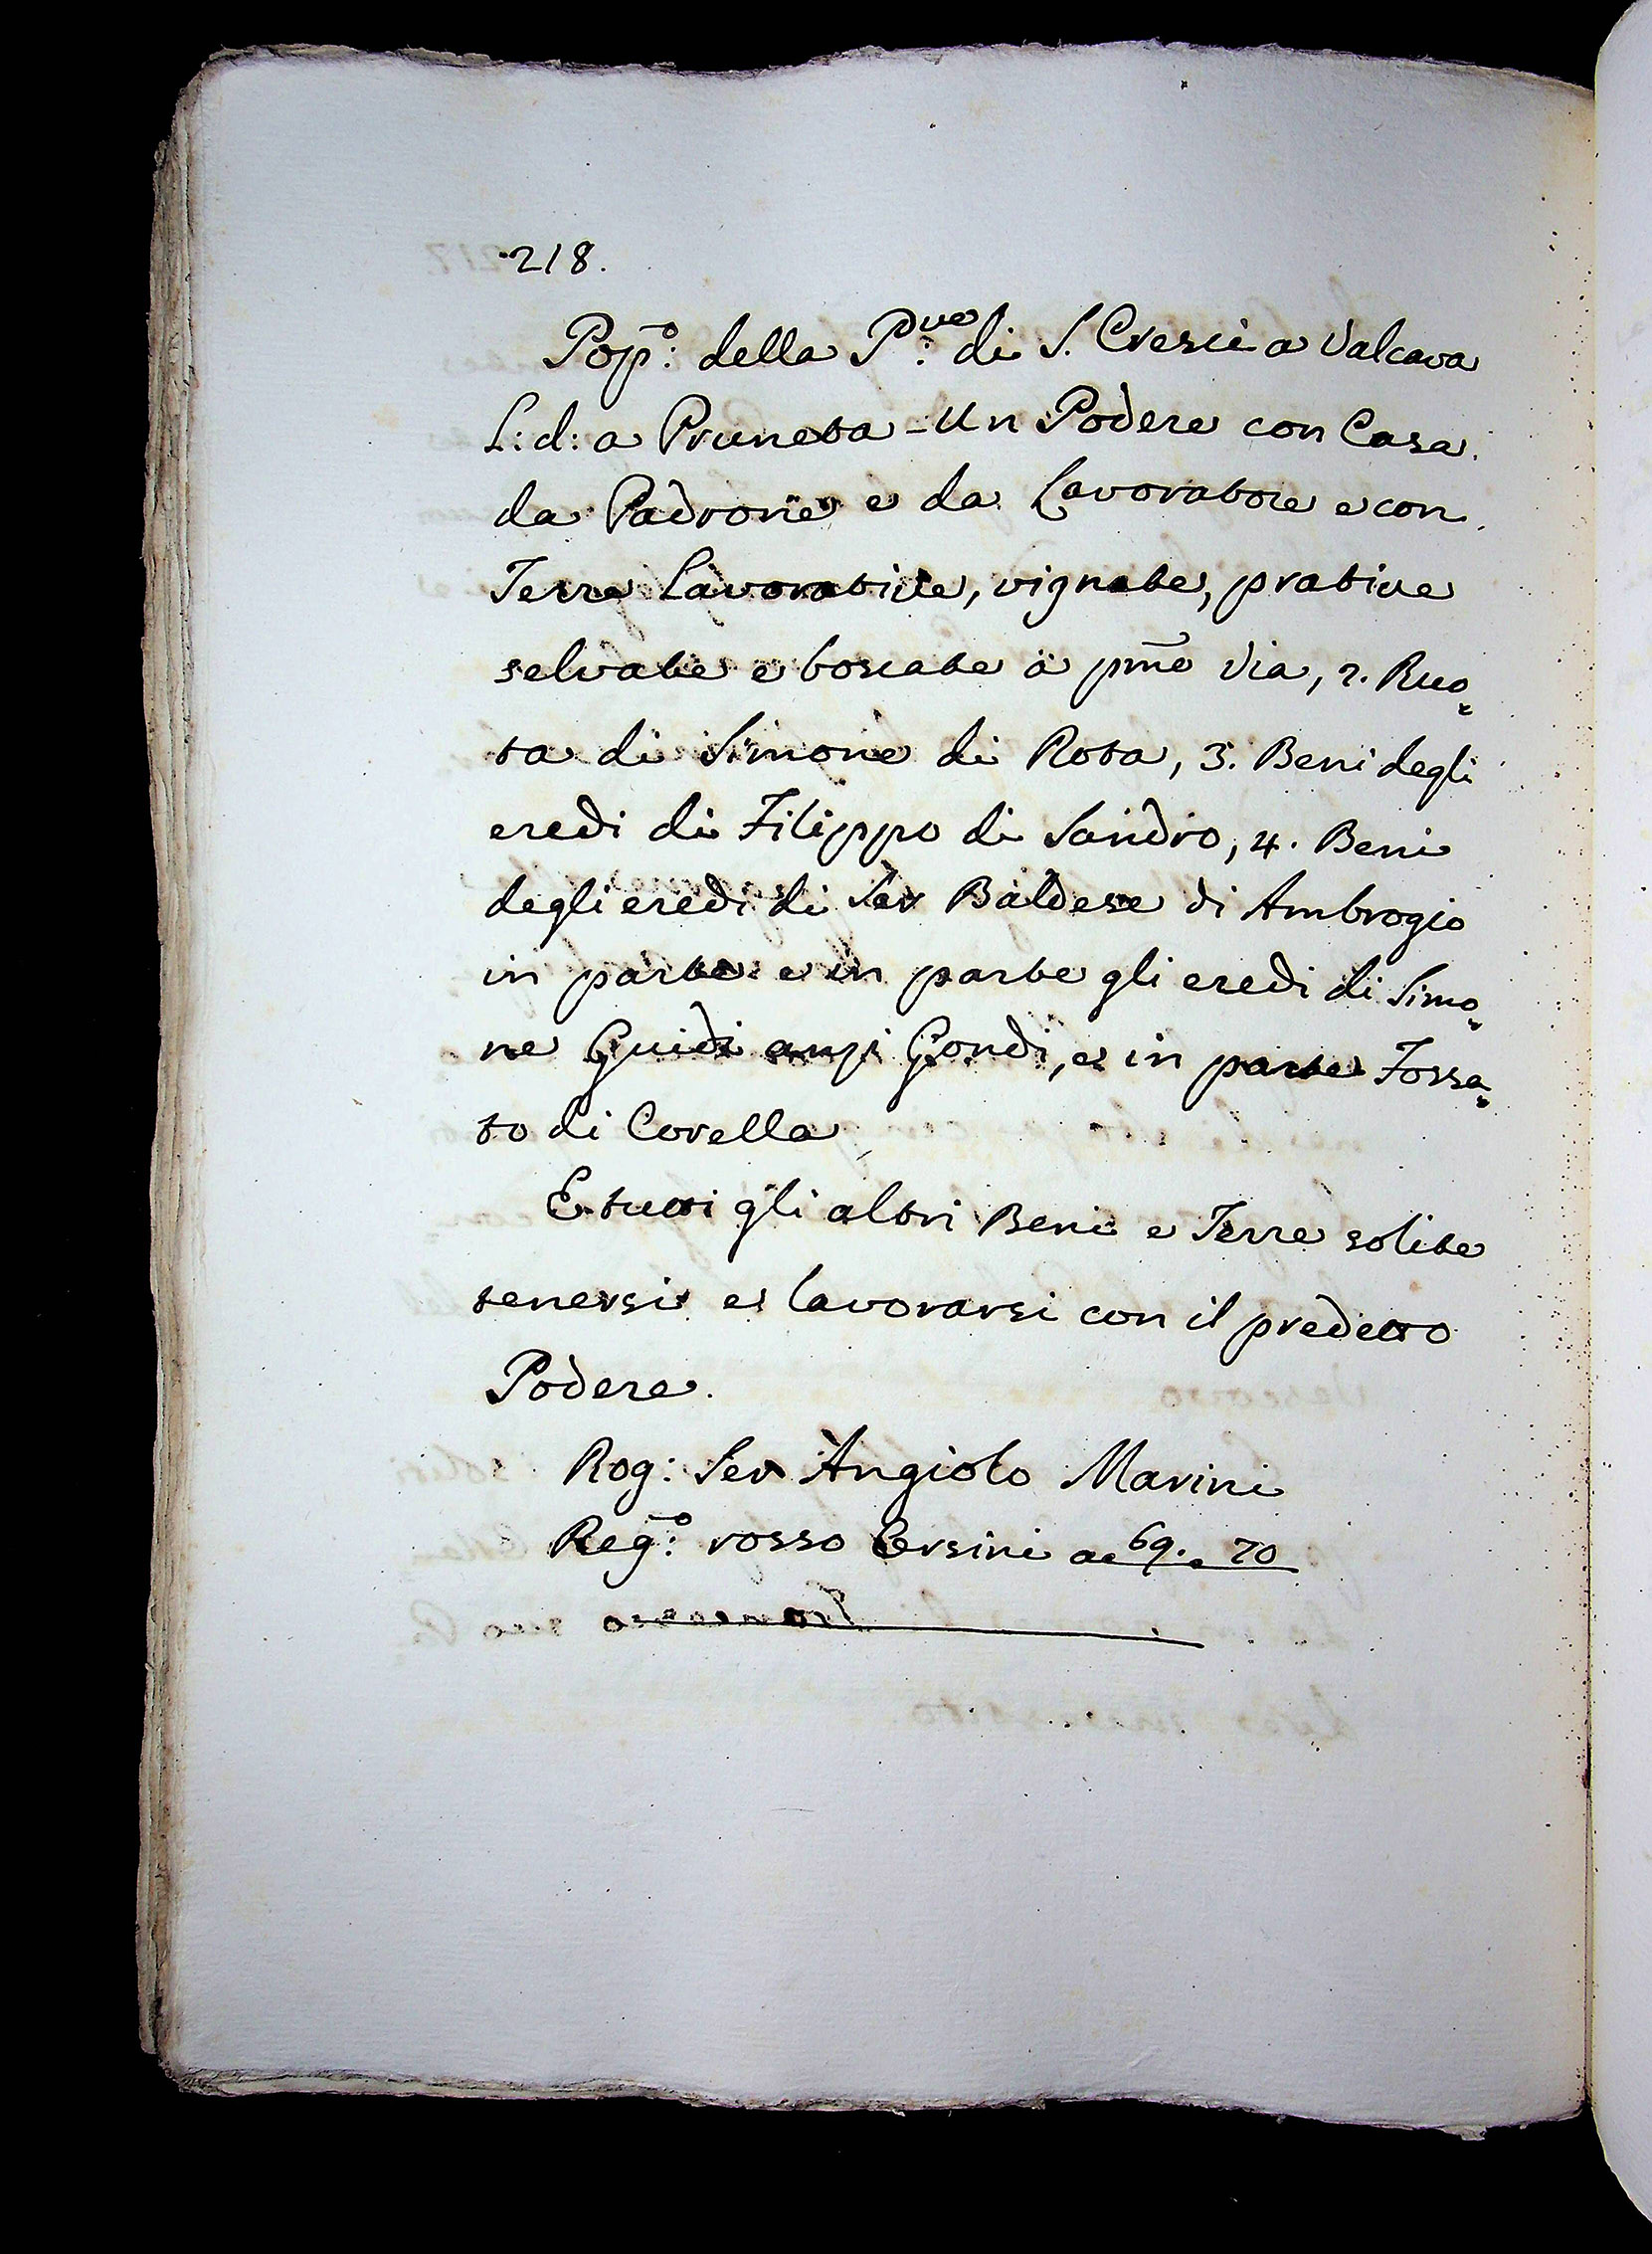 218.
Pop:º della P:ve di S. Cresci a Valcava
L: d: a Pruneta - Un Podere con Casa
da Padrone e da Lavoratore e con
Terre Lavorative, vignate, prative
selvate e boscate a pmo Via, 2. Ruo=
ta di Simone di Rota, 3. Beni degli
eredi di Filippo di Sandro, 4. Beni
degli eredi di Ser Baldese di Ambrogio
in parte e in parte gli eredi di Simo=
ne Guidi anzi Gondi, e in parte Fossa=
to di Corella
E tutti gli altri Beni e Terre solite
tenersi e lavorarsi con il predetto
Podere.
Rog: Ser Angiolo Marini
Reg:º rosso Orsini a 69. e 70